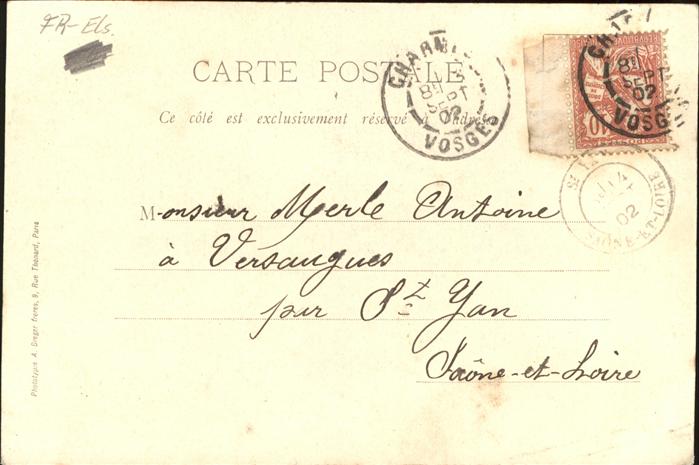 FR-Els.
CARTE POSTALE
Ce côté est exclusivement réservé à l'adresse
CHARMES
8
SEPT
02
VOSGES
8
SEPT
02
VOSGES
10
02
SAÔNE-ET-LOIRE
Monsieur Merle Antoine
à Versaugues
par St Yan
Saône-et-Loire
Phototypie A. Breger frères, 9, Rue Thénard, Paris